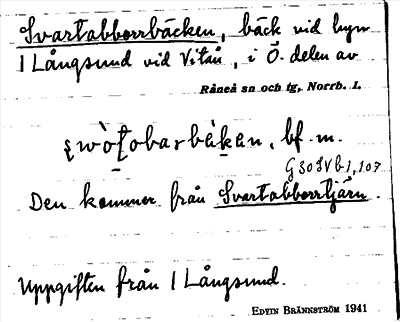 Svartabborrbäcken, bäck vid byn
1 Långsund vid Vitån, i Ö. delen av
Råneå sn och tg, Norrb. l.
bf. m.
G 30 SV b 1, 107
Den kommer från Svartabborrtjärn.
Uppgiften från 1 Långsund.
EDVIN BRÄNNSTRÖM 1941